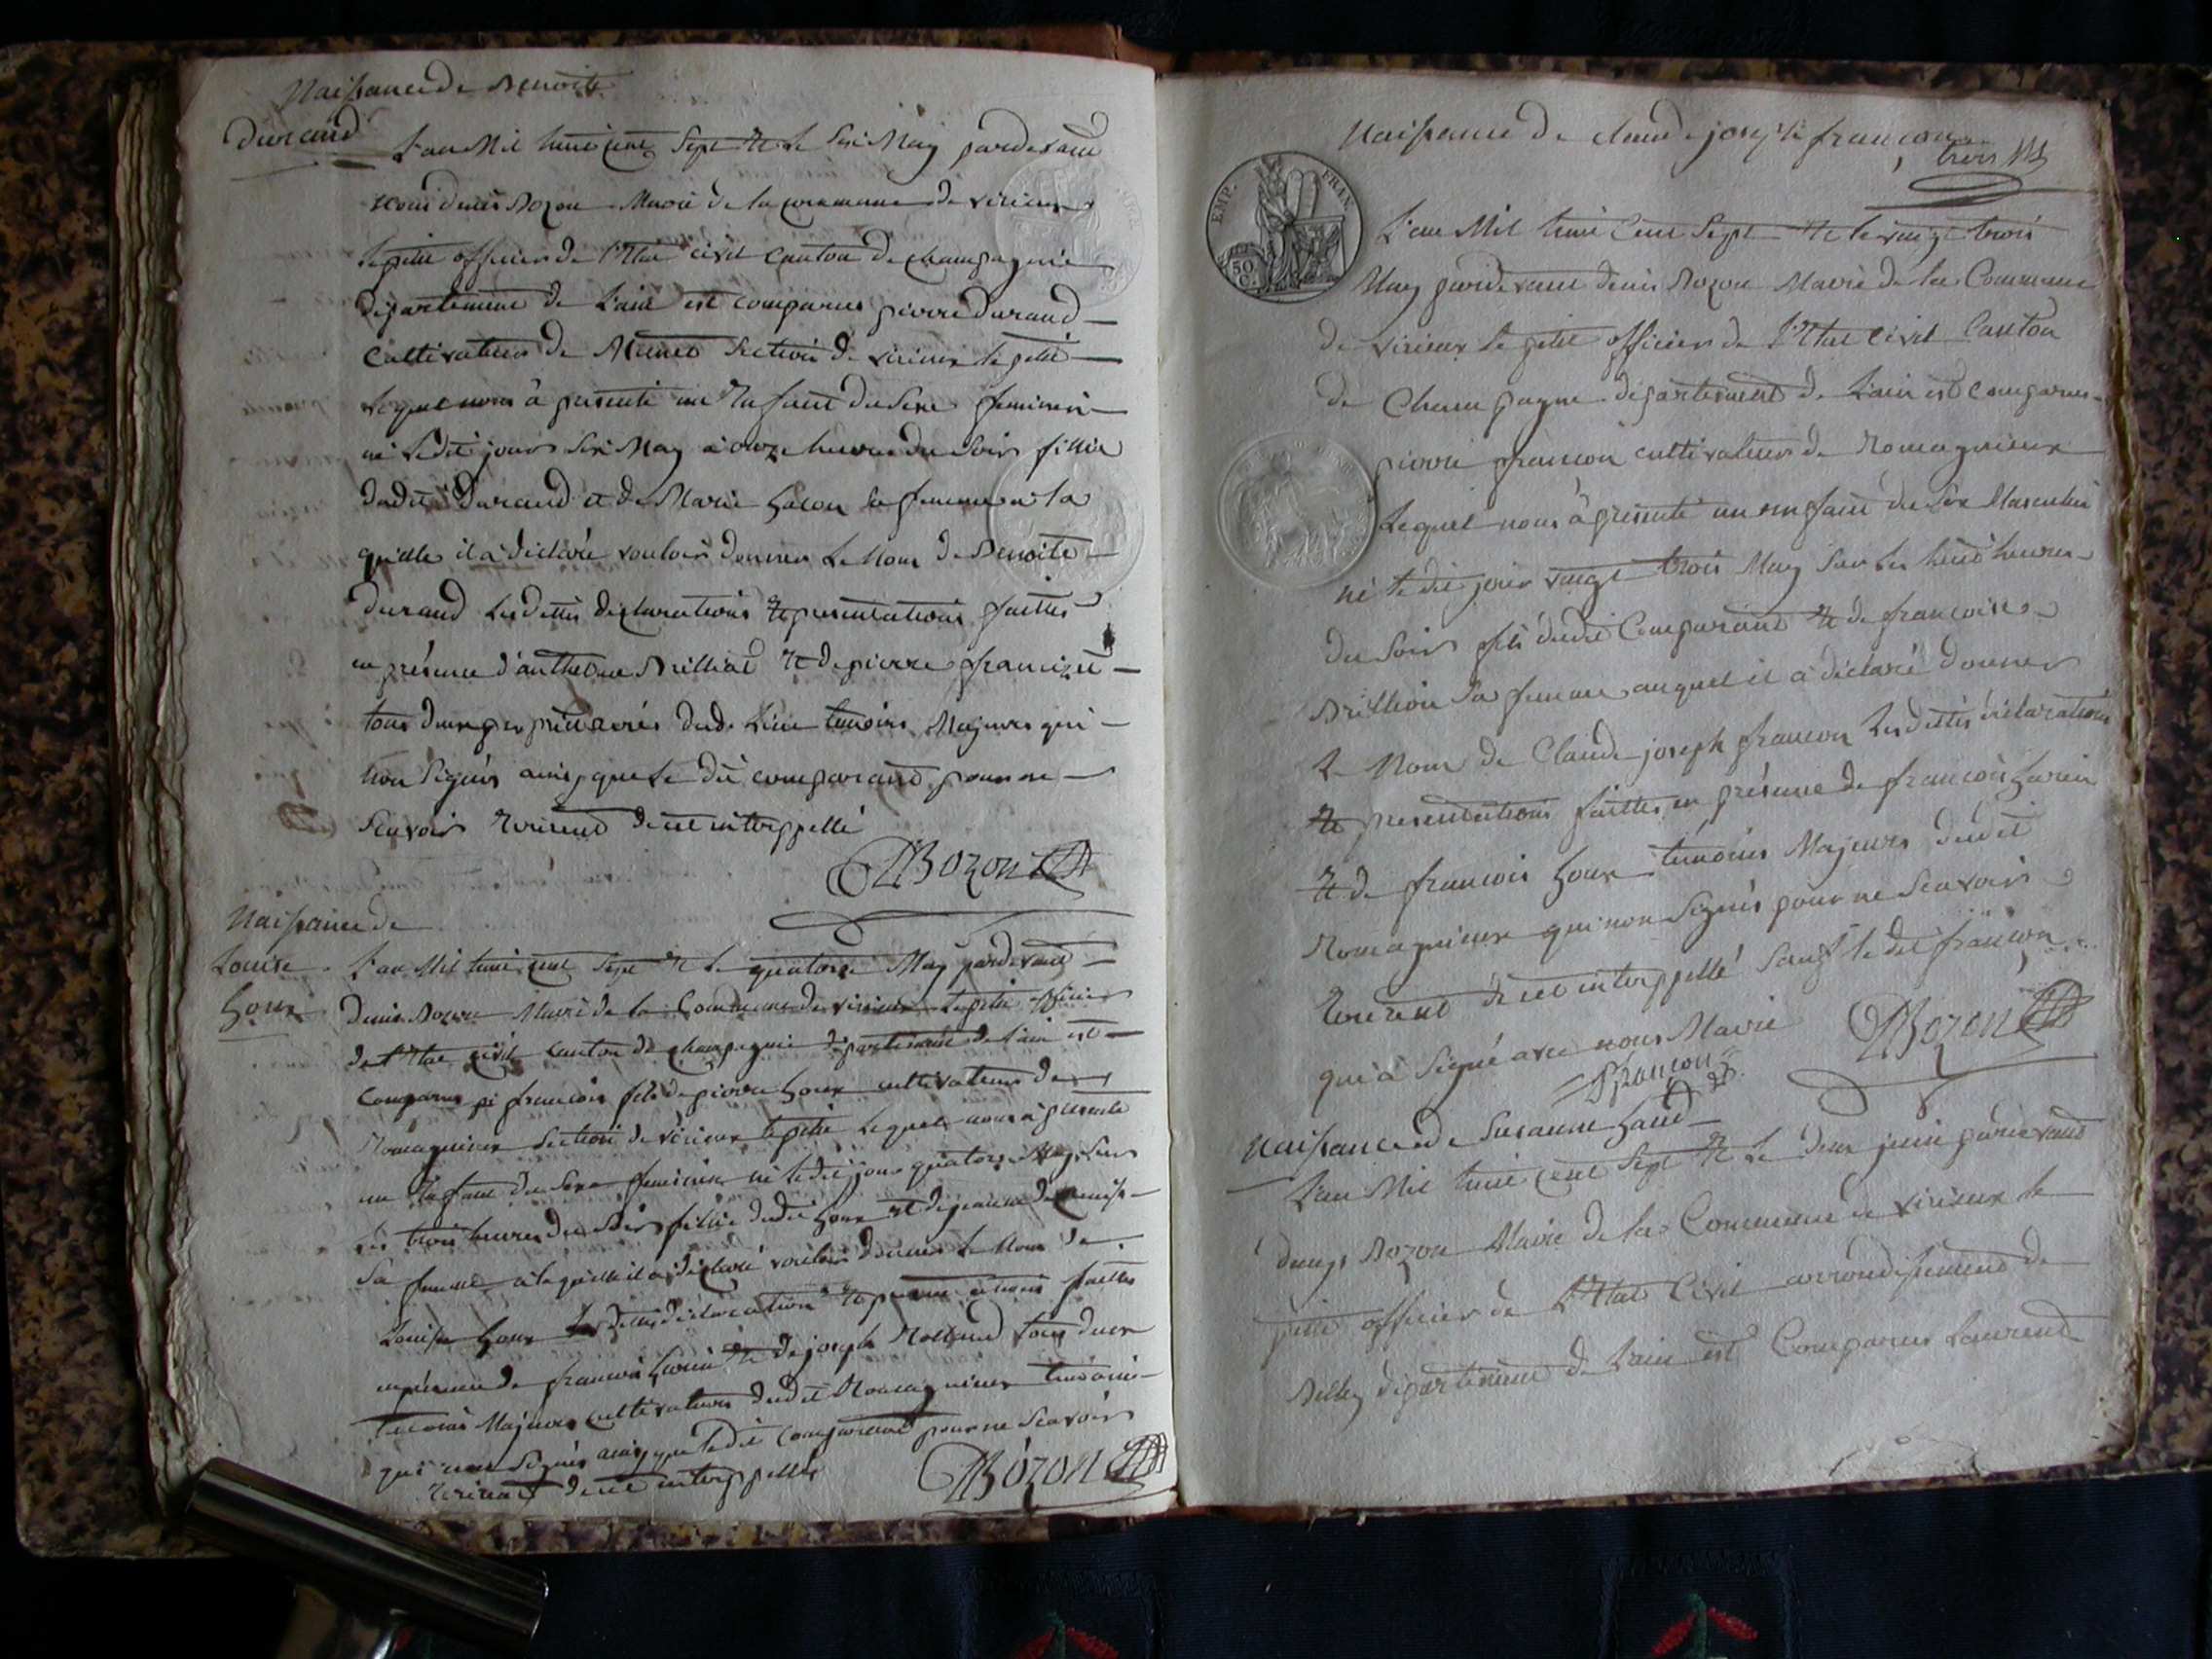 Naissance de Benoite
Durand
L'an Mil huit cent Sept & le Six May pardevant
nous denis Bozon Maire de la commune de virieux
le petit officier de l'Etat civil Canton de Champagne
département de L'ain est comparus pierre durand
Cultivateur de Munet Section de virieux le petit
lequel nous à présenté un Enfant du Sexe feminin
né Ledit jour Six May à onze heures du Soir fillie
dudit Durand et de Marie sa femme a la
quelle il à déclaré vouloir donner Le Nom de Benoite
durand Lesdittes déclarations & presentations faittes
en présence d'anthelme Brilliat & de pierre
tous deux dud. Lieu temoins Majeurs qui
non Signés ainsy que le dit comparant pour ne
Scavoir Ecrirent de ce interppellé
DBozon
Naissance de
Louise
houx
L'an Mil huit cent Sept & le quatorze May pardevant
denis Bozon Maire de la Commune de virieux le petit officier
de l'Etat civil canton de Champagne département de l'ain est
Comparus françois fils de pierre houx cultivateur de
Romagnieux Section de virieux le petit Lequel nous à présenté
un Enfant du Sexe feminin né le dit jour quatorze May Sur
les trois heures du Soir fillie dudit houx et de jeanne
Sa femme a la quelle il a déclaré vouloir donner le Nom de
Louise houx Les dittes déclarations & presentations faittes
en présence de francois & de joseph tous deux
temoins Majeurs cultivateurs dudit Romagnieux temoins
qui non Signés ainsy que le dit Comparant pour ne Scavoir
Ecrirent de ce interppellés
DBozon
Naissance de claude joseph francon
trois
EMP. FRAN.
50 C.
L'an Mil huit Cent Sept & le vingt trois
May pardevant denis Bozon Maire de la Commune
de virieux le petit officier de l'Etat Civil Canton
de Champagne département de L'ain est comparus
pierre françon cultivateur de Romagnieux
Lequel nous à présenté un enfant du Sèx Masculin
né le dit jour vingt trois May Sur les huit heures
du Soir fils dudit Comparant & de françoise
Brillion Sa femme auquel il à déclaré donner
Le Nom de Claude joseph francon Les dittes déclarations
& presentations faittes en présence de francois
& de francois houx temoins Majeurs dudit
Romagnieux qui non Signés pour ne Scavoir
Ecrirent de ce interppellé Sauf le dit françon
qui à Signé avec nous Maire
francon
DBozon
Naissance de Susanne
L'an Mil huit cent Sept & Le deux juin pardevant
denys Bozon Maire de la Commune de virieux le
petit officier de L'Etat Civil arrondissement de
Belley département de L'ain est Comparus Laurent